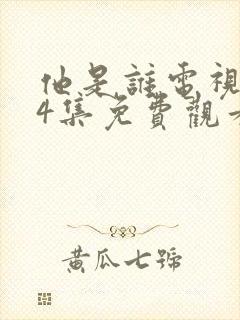 他是誰電視
4集免費觀
黃瓜七號